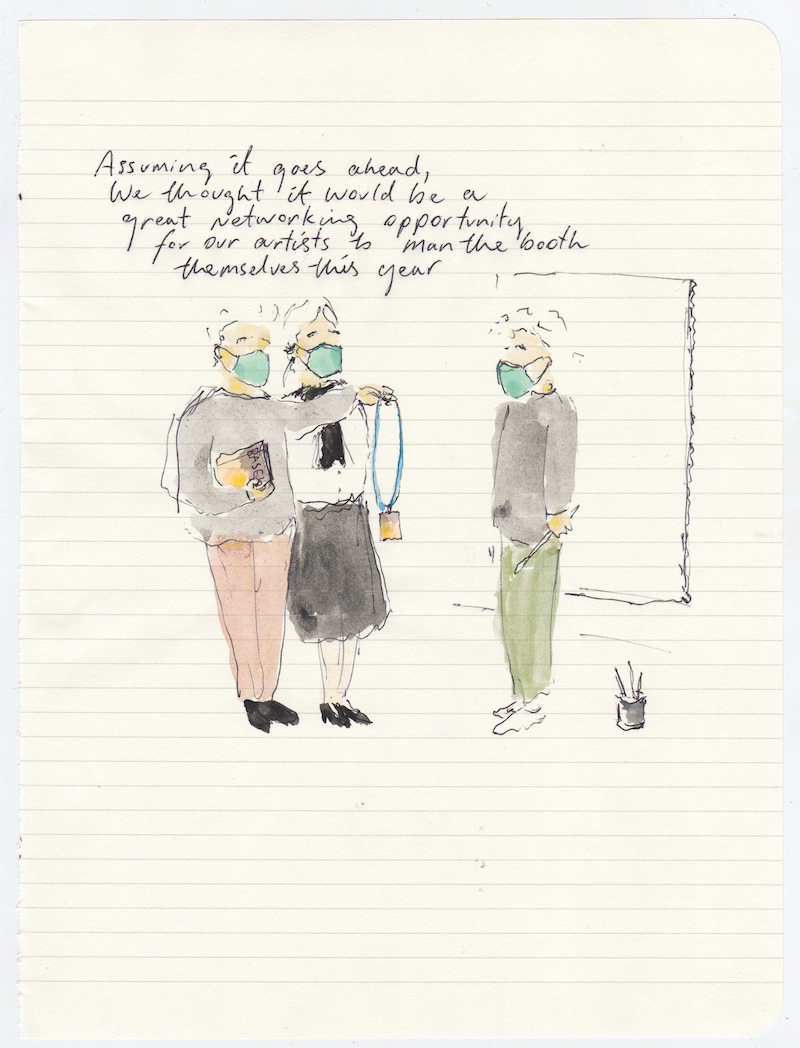 Assuming it goes ahead,
We thought it would be a
great networking opportunity
for our artists to man the booth
themselves this year
BASEL